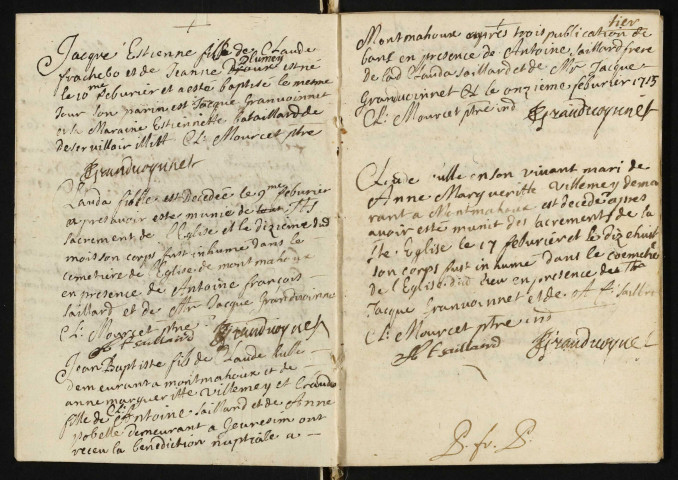 Jacque Estienne fils de Claude
frachebo et de Jeanne est né
le 10me febvrier et a esté baptisé le mesme
Jour son parin est Jacque Granvoinnet
et sa Maraine Estiennette Bataillard de
deservillair illitt Cl: Mourcet ptre
JGrandvoynnet
Landa fille est decedée le 9me febvrier
apres avoir esté munie de tout Sts
sacrement de l'Eglise et le dizieme dud
mois son corps fust inhumé dans le
cemetiere de l'Eglise de montmahoux
en presence de Antoine françois
saillard et de Mr Jacque Grandvoinnet
Cl: Mourcet ptre
A f saillard JGrandvoynet
Jean Baptiste fils de Claude lulle
demeurant a montmahoux et de
anne margueritte villemey et Clauda
fille de Antoine saillard et de Anne
pobelle demeurant a Gevresin ont
receu la benediction nuptiale a
Montmahoux apres trois publication de
bans en presence de Antoine saillard frere
de lad Clauda saillard et de Mr Jacque
Granvoinnet le onzieme febvrier 1715
Cl: Mourcet ptre ind JGrandvoynet
Claude lulle en son vivant mari de
Anne Margueritte villemey demeu
rant a Montmahoux est decedé apres
avoir esté munit des sacrements de la
Ste Eglise le 17 febvrier et le dizehuit
son corps fust inhumé dans le coemetiere
de l'Eglise dud lieu en presence de
Jacque Granvoinnet et de A f: saillard
Cl: Mourcet ptre ind
A f saillard JGrandvoynet
P. fr. P.